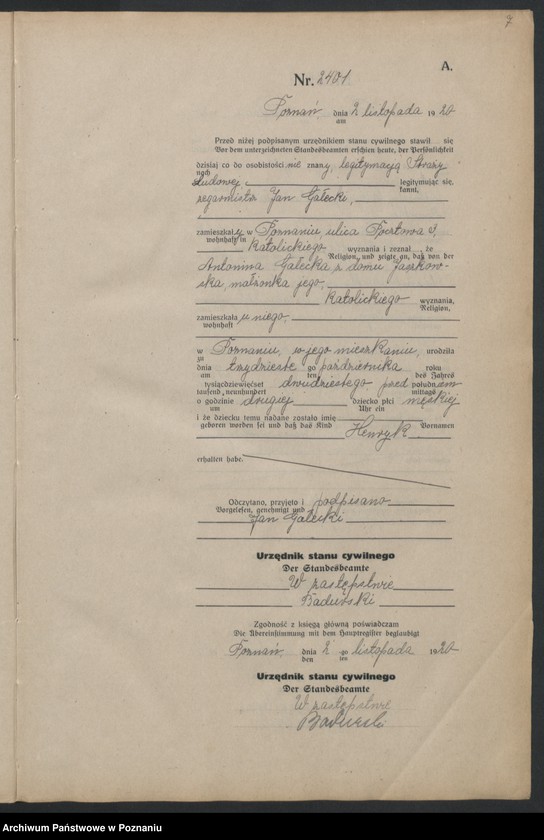 A.
Nr. 2401.
Poznań dnia 2 listopada 1920
am
Przed niżej podpisanym urzędnikiem stanu cywilnego stawił się
Vor dem unterzeichneten Standesbeamten erschien heute, der Persönlichkeit
dzisiaj co do osobistości nie znany, legitymacją Straży
nach
Ludowej legitymując się
kannt,
zegarmistrz Jan Gałecki,
zamieszkały w Poznaniu ulica Pocztowa
wohnhaft in
katolickiego wyznania i zeznał, że
Religion, und zeigte an, daß von der
Antonina Gałecka z domu Jaszkow-
ska, małżonka jego,
katolickiego wyznania,
Religion,
zamieszkała u niego.
wohnhaft
w Poznaniu, w jego mieszkaniu, urodziła
zu
dnia trzydziestego października roku
am ten des Jahres
tysiącdziewięćset dwudziestego przed południem
tausend, neunhundert mittags
o godzinie drugiej dziecko płci męskiej
um Uhr ein
i że dziecku temu nadano zostało imię
geboren worden sei und daß das Kind Vornamen
Henryk
erhalten habe.
Odczytano, przyjęto i podpisano
Vorgelesen, genehmigt und
Jan Gałecki
Urzędnik stanu cywilnego
Der Standesbeamte
W zastępstwie
Badurski
Zgodność z księgą główną poświadczam
Die Übereinstimmung mit dem Hauptregister beglaubigt
Poznań dnia 2 go listopada 1920
den ten
Urzędnik stanu cywilnego
Der Standesbeamte
W zastępstwie
Badurski
Archiwum Państwowe w Poznaniu